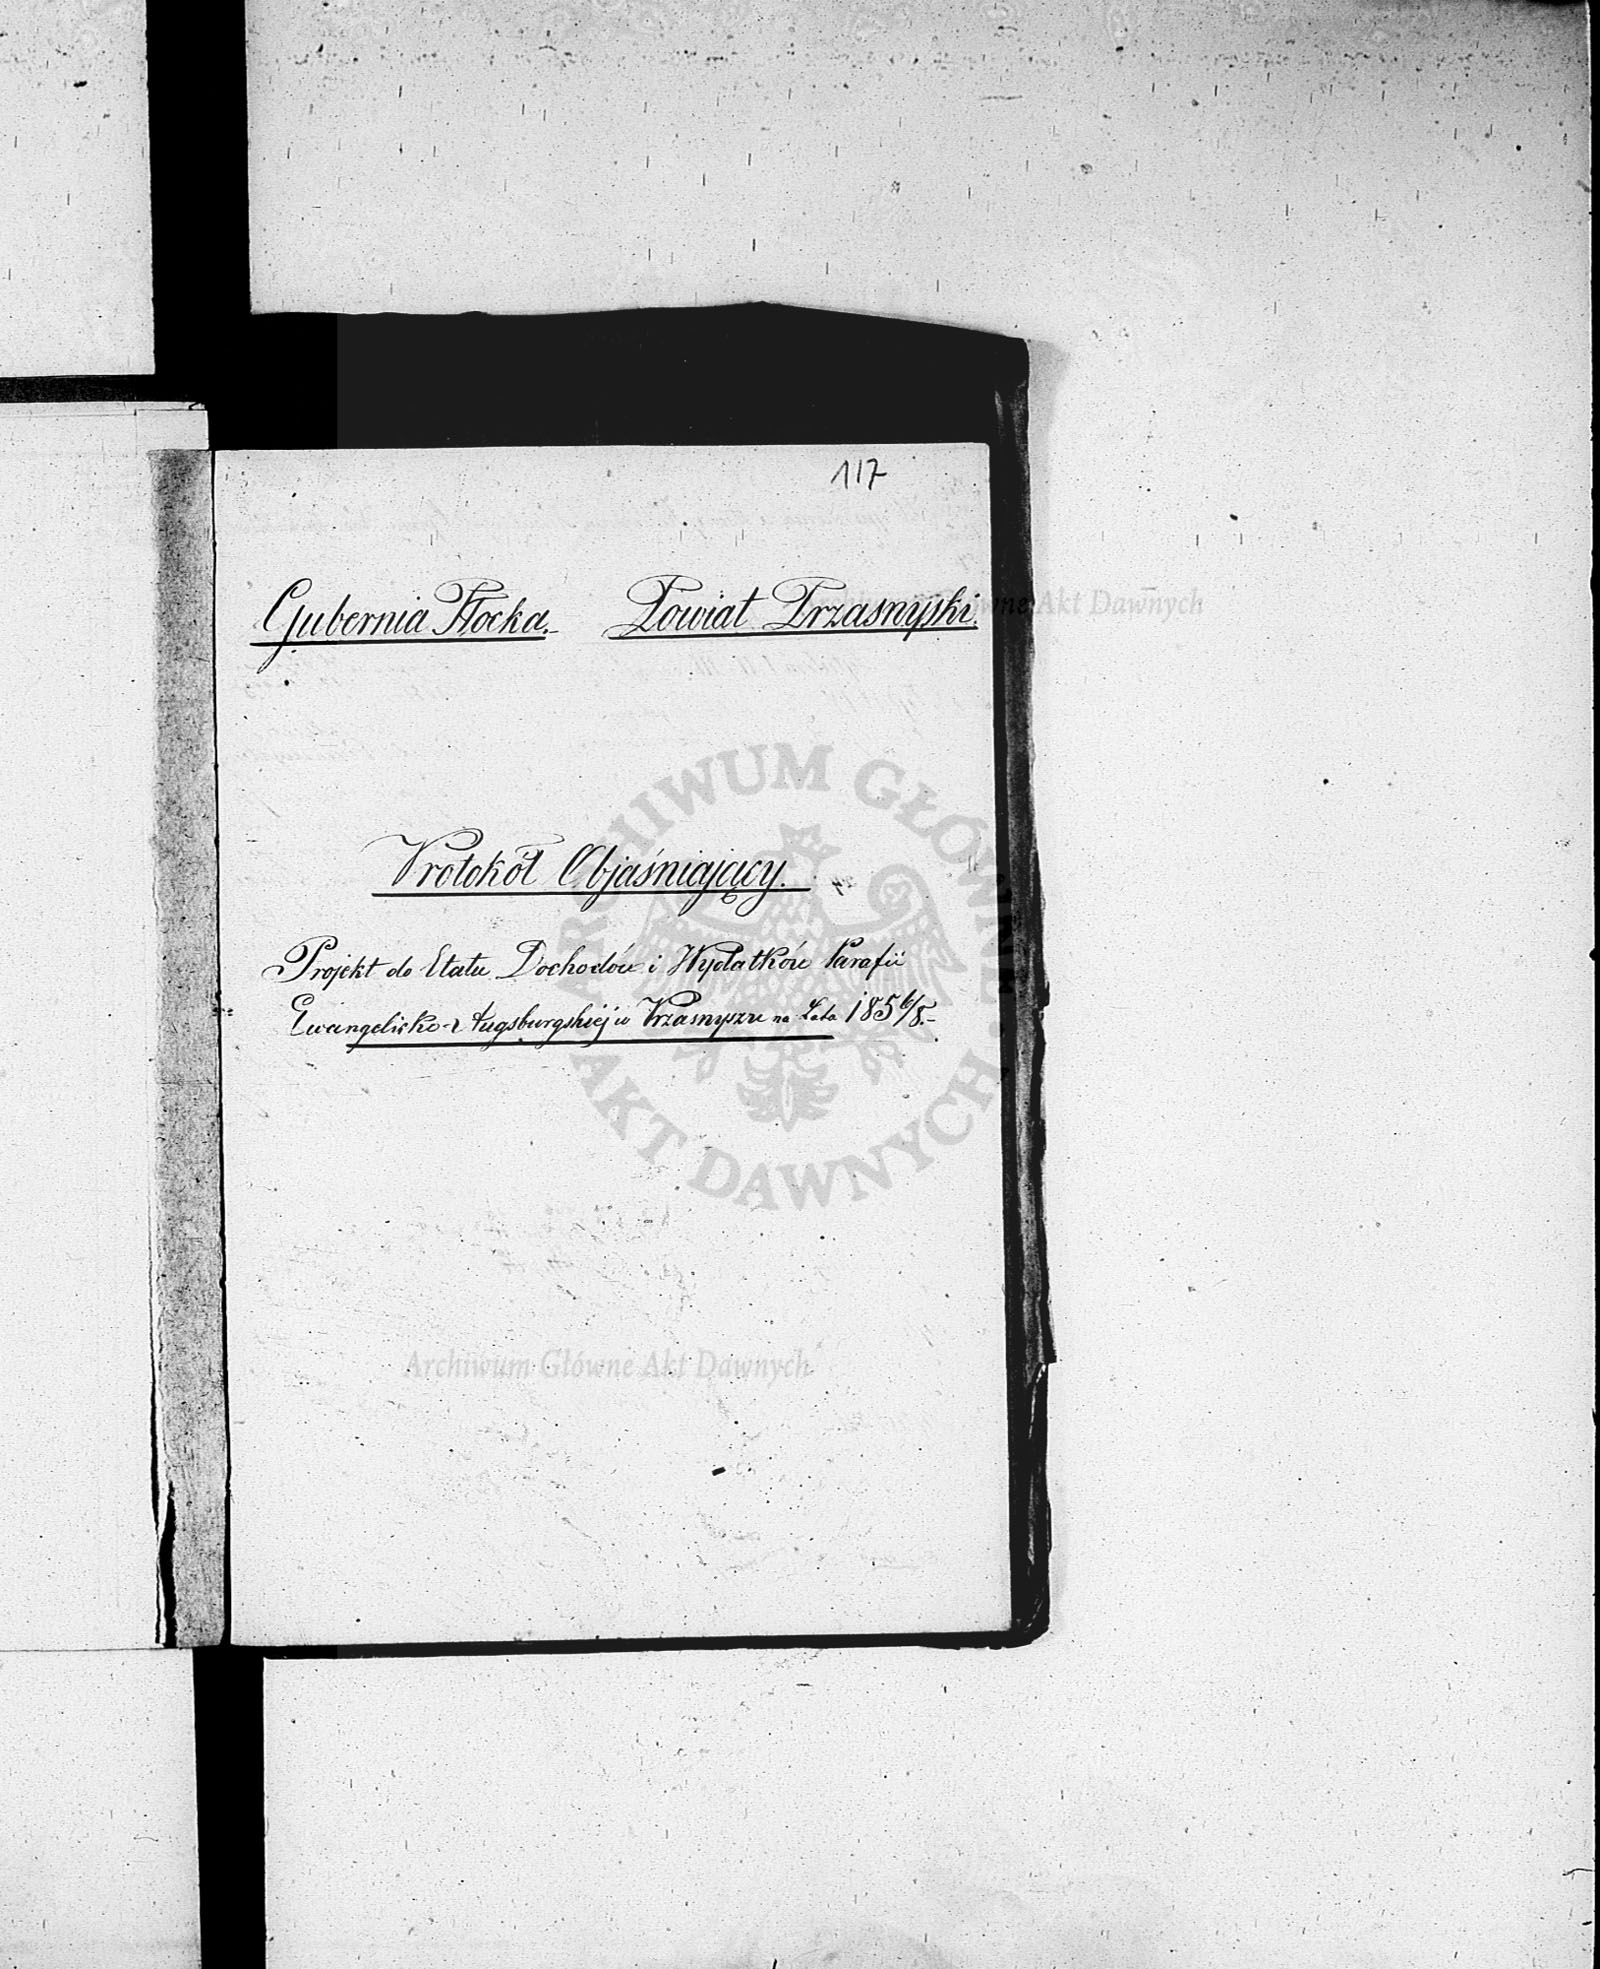 117
Gubernia Płocka. Powiat Przasnyski.
Protokół Objaśniający.
Projekt do Etatu Dochodów i Wydatków Parafii
Ewangelicko-Augsburgskiej w Przasnyszu na Lata 1856/8.
ARCHIWUM GŁÓWNE AKT DAWNYCH
Archiwum Główne Akt Dawnych
Archiwum Główne Akt Dawnych